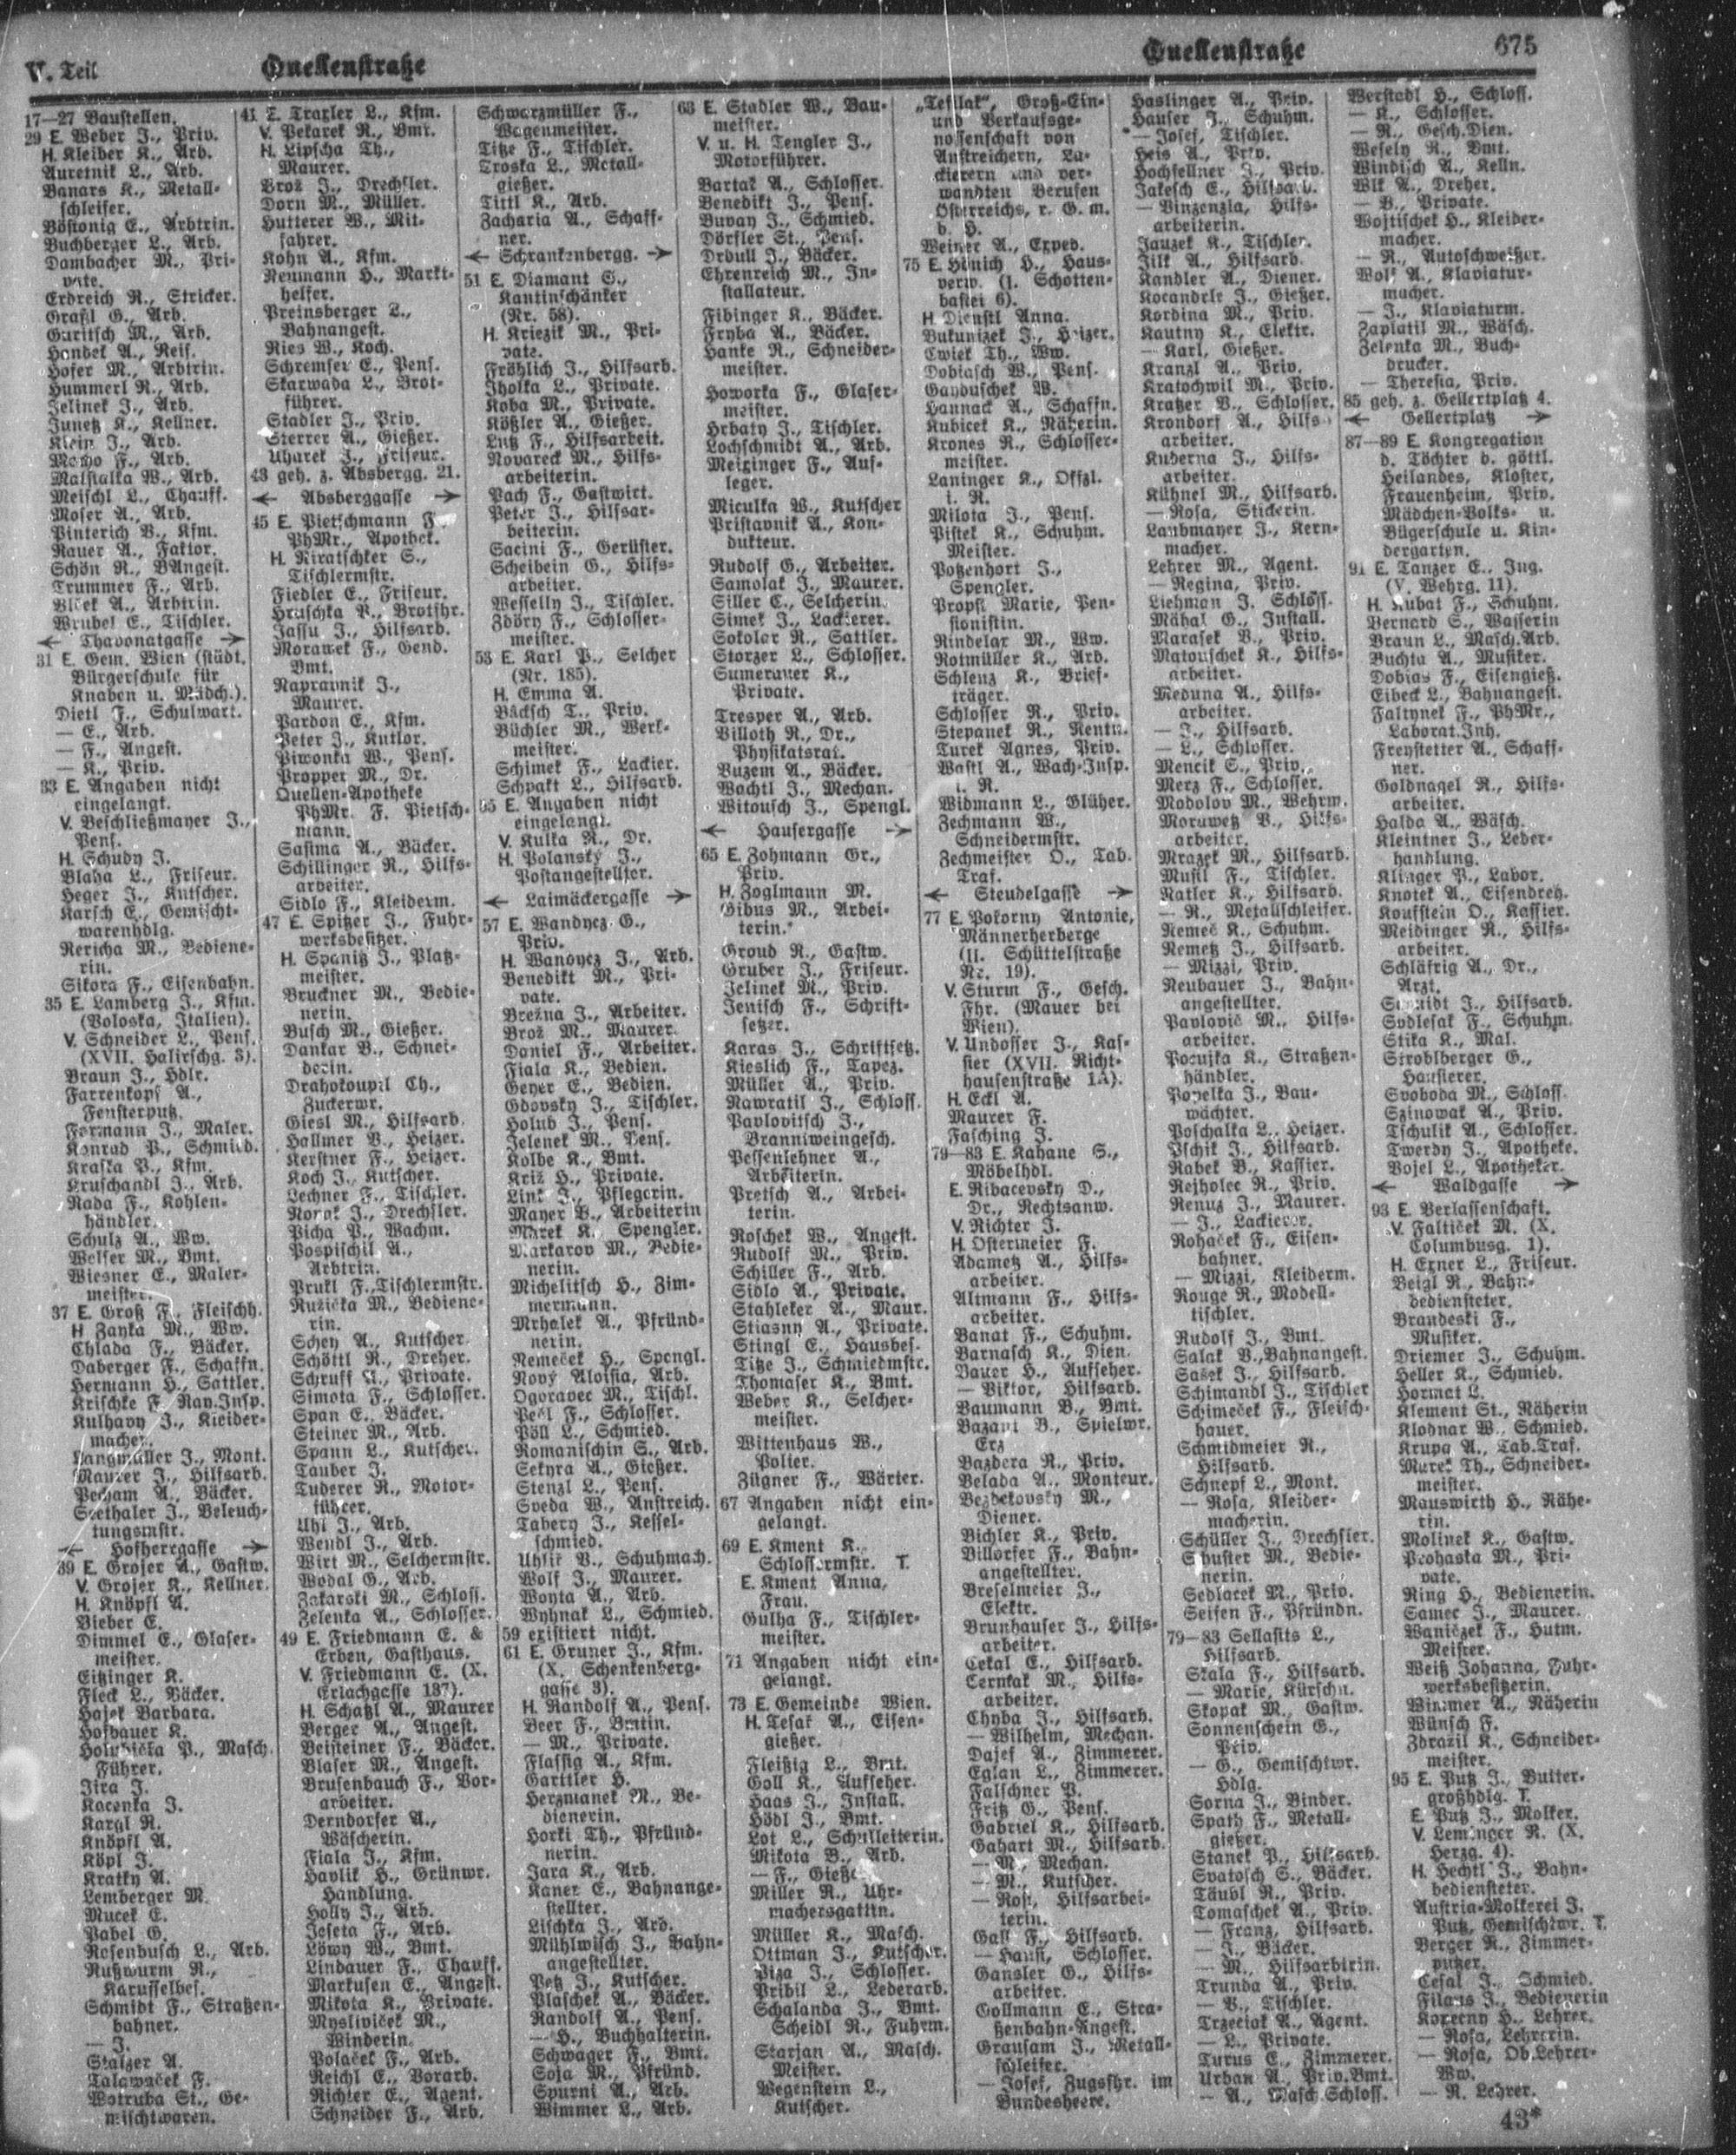 V. Teil
Quellenstraße
Quellenstraße
675
17—27 Baustellen.
29 E. Weber J., Priv.
H. Kleiber K., Arb.
Auretnik L., Arb.
Banars K., Metall-
schleifer.
Böstonig E., Arbtrin.
Buchberger L., Arb.
Dambacher M., Pri-
vate.
Erdreich R., Stricker.
Graßl G., Arb.
Guritsch M., Arb.
Handek A., Reis.
Hofer M., Arbtrin.
Hummerl R., Arb.
Jelinek J., Arb.
Junetz K., Kellner.
Klein J., Arb.
Macho F., Arb.
Malstalka W., Arb.
Meischl L., Chauff.
Moser A., Arb.
Pinterich V., Kfm.
Rauer A., Faktor.
Schön R., BAngest.
Trummer F., Arb.
Vlček A., Arbtrin.
Wrubel E., Tischler.
← Thavonatgasse →
31 E. Gem. Wien (städt.
Bürgerschule für
Knaben u. Mädch.).
Dietl F., Schulwart.
— E., Arb.
— F., Angest.
— K., Priv.
33 E. Angaben nicht
eingelangt.
V. Beschließmayer J.,
Pens.
H. Schudy J.
Blaha L., Friseur.
Heger J., Kutscher.
Karsch E., Gemischt-
warenhdlg.
Rericha M., Bediene-
rin.
Sikora F., Eisenbahn.
35 E. Lamberg J., Kfm.
(Voloska, Italien).
V. Schneider L., Pens.
(XVII. Halirschg. 3).
Braun J., Hdlr.
Farrenkopf A.,
Fensterputz.
Formann J., Maler.
Konrad P., Schmied.
Kraska V., Kfm.
Kruschandl J., Arb.
Rada F., Kohlen-
händler.
Schulz A., Ww.
Welser M., Bmt.
Wiesner E., Maler-
meister.
37 E. Groß F., Fleischh.
H. Zayka M., Ww.
Chlada F., Bäcker.
Daberger F., Schaffn.
Hermann H., Sattler.
Krischke F. Ray.Insp.
Kulhavy J., Kleider-
macher.
Langmüller J., Mont.
Maurer J., Hilfsarb.
Pecham A., Bäcker.
Seethaler J., Beleuch-
tungsmstr.
← Hofherrgasse →
39 E. Grojer A., Gastw.
V. Grojer K., Kellner.
H. Knöpfl A.
Bieber E.
Dimmel E., Glaser-
meister.
Eitzinger K.
Fleck L., Bäcker.
Hajek Barbara.
Hofbauer K.
Holubička P., Masch.
Führer.
Jira J.
Kacenka J.
Kargl R.
Knöpfl A.
Köpl J.
Kratky A.
Lemberger M.
Mucek E.
Pabel G.
Rosenbusch L., Arb.
Rußwurm R.,
Karussellbes.
Schmidt F., Straßen-
bahner.
— J.
Stalzer A.
Talawaček F.
Wotruba St., Ge-
mischtwaren.
41 E. Traxler L., Kfm.
V. Pekarek R., Bmt.
H. Lipscha Th.,
Maurer.
Brož J., Drechsler.
Dorn M., Müller.
Hutterer W., Mit-
fahrer.
Kohn A., Kfm.
Neumann H., Markt-
helfer.
Preinsberger L.,
Bahnangest.
Ries W., Koch.
Schremser E., Pens.
Skarwada L., Brot-
führer.
Stadler J., Priv.
Sterrer A., Gießer.
Uharek J., Friseur.
43 geh. z. Absbergg. 21.
← Absberggasse →
45 E. Pietschmann F.
PhMr., Apothek.
H. Kiratschker S.,
Tischlermstr.
Fiedler E., Friseur.
Hruschka P., Brotfhr.
Jassu J., Hilfsarb.
Morawek F., Gend.
Bmt.
Napravnik J.,
Maurer.
Pardon E., Kfm.
Peter J., Kutlor.
Piwonka W., Pens.
Propper M., Dr.
Quellen-Apotheke
PhMr. F. Pietsch-
mann.
Sasima A., Bäcker.
Schillinger R., Hilfs-
arbeiter.
Sidlo F., Kleiderm.
47 E. Spitzer J., Fuhr-
werksbesitzer.
H. Spanitz J., Platz-
meister.
Bruckner M., Bedie-
nerin.
Busch M., Gießer.
Dankar B., Schnei-
derin.
Drahokoupil Ch.,
Zuckerwr.
Giesl M., Hilfsarb.
Hallmer V., Heizer.
Kerstner F., Heizer.
Koch J., Kutscher.
Lechner F., Tischler.
Novak J., Drechsler.
Picha P., Wachm.
Pospischil A.,
Arbtrin.
Prukl F., Tischlermstr.
Ružička M., Bediene-
rin.
Schey A., Kutscher.
Schöttl R., Dreher.
Schruff A., Private.
Simota F., Schlosser.
Span E., Bäcker.
Steiner M., Arb.
Spann L., Kutscher.
Tauber J.
Tuderer R., Motor-
führer.
Uhl J., Arb.
Wendl J., Arb.
Wirt M., Selchermstr.
Wodal G., Arb.
Zakarski M., Schloss.
Zelenka A., Schlosser.
49 E. Friedmann E. &
Erben, Gasthaus.
V. Friedmann E. (X.
Erlachgasse 137).
H. Schatzl A., Maurer
Berger A., Angest.
Beisteiner F., Bäcker.
Blaser M., Angest.
Brusenbauch F., Vor-
arbeiter.
Derndorfer A.,
Wäscherin.
Fiala J., Kfm.
Havlik H., Grünwr.
Handlung.
Holly J., Arb.
Joseta F., Arb.
Löwy W., Bmt.
Lindauer F., Chauff.
Markusen E., Angest.
Mikota K., Private.
Mysliviček M.,
Winderin.
Polaček F., Arb.
Reichl E., Vorarb.
Richter E., Agent.
Schneider F., Arb.
Schwarzmüller F.,
Wagenmeister.
Titze F., Tischler.
Troska L., Metall-
gießer.
Tittl K., Arb.
Zacharia A., Schaff-
ner.
← Schrankenbergg. →
51 E. Diamant E.,
Kantinschänker
(Nr. 58).
H. Kriezik M., Pri-
vate.
Fröhlich J., Hilfsarb.
Jholka L., Private.
Koba M., Private.
Kößler A., Gießer.
Lutz F., Hilfsarbeit.
Novareck M., Hilfs-
arbeiterin.
Pach F., Gastwirt.
Peter J., Hilfsar-
beiterin.
Sacini F., Gerüster.
Scheibein G., Hilfs-
arbeiter.
Wesselly J., Tischler.
Zdöry F., Schlosser-
meister.
53 E. Karl P., Selcher
(Nr. 185).
H. Emma A.
Bäcksch T., Priv.
Büchler M., Werk-
meister.
Schimek F., Lackier.
Schpakt L., Hilfsarb.
55 E. Angaben nicht
eingelangt.
V. Kulka R., Dr.
H. Polansky J.,
Postangestellter.
← Laimäckergasse →
57 E. Wandycz G.,
Priv.
H. Wandycz J., Arb.
Benedikt M., Pri-
vate.
Brežna J., Arbeiter.
Brož M., Maurer.
Daniel F., Arbeiter.
Fiala K., Bedien.
Geyer E., Bedien.
Gdovsky J., Tischler.
Holub J., Pens.
Jelenek M., Pens.
Kolbe K., Bmt.
Križ H., Private.
Link J., Pflegerin.
Mayer B., Arbeiterin
Marek K., Spengler.
Markarov M., Bedie-
nerin.
Michelitsch H., Zim-
mermann.
Mrhalek A., Pfründ-
nerin.
Nemeček H., Spengl.
Nový Aloisia, Arb.
Ogoravec M., Tischl.
Pečl F., Schlosser.
Pöll L., Schmied.
Romanischin S., Arb.
Sekyra A., Gießer.
Stenzl L., Pens.
Sveda W., Anstreich.
Tabery J., Kessel-
schmied.
Uhlir V., Schuhmach.
Wolf J., Maurer.
Woyta A., Arb.
Wyhnak L., Schmied.
59 existiert nicht.
61 E. Gruner J., Kfm.
(X. Schenkenberg-
gasse 3).
H. Randolf A., Pens.
Beer F., Bmtin.
— M., Private.
Flassig A., Kfm.
Garttler H.
Herzmanek M., Be-
dienerin.
Horki Th., Pfründ-
nerin.
Jara K., Arb.
Kaner E., Bahnange-
stellter.
Lischka J., Arb.
Mühlwisch J., Bahn-
angestellter.
Petz J., Kutscher.
Plaschek A., Bäcker.
Randolf A., Pens.
— H., Buchhalterin.
Schwager F., Bmt.
Soja M., Pfründ.
Spurni A., Arb.
Wimmer L., Arb.
63 E. Stadler W., Bau-
meister.
V. u. H. Tengler J.,
Motorführer.
Bartak A., Schlosser.
Benedikt J., Pens.
Buvay J., Schmied.
Dörfler St., Pens.
Drdull J., Bäcker.
Ehrenreich M., In-
stallateur.
Fibinger K., Bäcker.
Fryba A., Bäcker.
Hanke R., Schneider-
meister.
Howorka F., Glaser-
meister.
Hrbaty J., Tischler.
Lochschmidt A., Arb.
Meitzinger F., Auf-
leger.
Miculka W., Kutscher
Pristavnik A., Kon-
dukteur.
Rudolf G., Arbeiter.
Samolak J., Maurer.
Siller C., Selcherin.
Simek J., Lackierer.
Sokolar R., Sattler.
Storzer L., Schlosser.
Sumerauer K.,
Private.
Tresper A., Arb.
Villoth R., Dr.,
Physikatsrat.
Vuzem A., Bäcker.
Wachtl J., Mechan.
Witousch J., Spengl.
← Hausergasse →
65 E. Zohmann Gr.,
Priv.
H. Zoglmann M.
Gibus M., Arbei-
terin.
Groud R., Gastw.
Gruber J., Friseur.
Jelinek M., Priv.
Jenisch F., Schrift-
setzer.
Karas J., Schriftsetz.
Kieslich F., Tapez.
Müller A., Priv.
Nawratil J., Schloss.
Pavlovitsch J.,
Branntweingesch.
Pessenlehner A.,
Arbeiterin.
Pretsch A., Arbei-
terin.
Roschek W., Angest.
Rudolf M., Priv.
Schiller F., Arb.
Sidlo A., Private.
Stahleker A., Maur.
Stiasny A., Private.
Stingl E., Hausbes.
Titze J., Schmiedmstr.
Thomaser K., Bmt.
Weber K., Selcher-
meister.
Wittenhaus W.,
Polier.
Zügner F., Wärter.
67 Angaben nicht ein-
gelangt.
69 E. Kment K.
Schlossermstr. T.
E. Kment Anna,
Frau.
Gulha F., Tischler-
meister.
71 Angaben nicht ein-
gelangt.
73 E. Gemeinde Wien.
H. Tesař A., Eisen-
gießer.
Fleißig L., Bmt.
Goll K., Aufseher.
Haas J., Install.
Hödl J., Bmt.
Lot L., Schulleiterin.
Mikota B., Arb.
— F., Gieße
Miller R., Uhr-
machersgattin.
Müller K., Masch.
Ottman J., Kutscher.
Piza J., Schlosser.
Pribil L., Lederarb.
Schalanda J., Bmt.
Scheidl R., Fuhrm.
Starjan A., Masch.
Meister.
Wegenstein L.,
Kutscher.
„Tefilak“, Groß-Ein-
und Verkaufsge-
nossenschaft von
Anstreichern, La-
ckierern und ver-
wandten Berufen
Österreichs, r. G. m.
b. H.
Weiner A., Exped.
75 E. Hönich H., Haus-
verw. (1. Schotten-
bastei 6).
H. Dienstl Anna.
Bukunizek J., Heizer.
Cwiek Th., Ww.
Dobiasch W., Pens.
Ganduschek W.
Hannack A., Schaffn.
Kubicek K., Näherin.
Krones R., Schlosser-
meister.
Laninger K., Offzl.
i. R.
Milota J., Pens.
Pistek K., Schuhm.
Meister.
Potzenhort J.,
Spengler.
Propst Marie, Pen-
sionistin.
Rindelar M., Ww.
Rotmüller K., Arb.
Schlenz K., Brief-
träger.
Schlosser R., Priv.
Stepanek R., Rentn.
Turek Agnes, Priv.
Wastl A., Wach-Insp.
i. R.
Widmann L., Glüher.
Zechmann W.,
Schneidermstr.
Zechmeister O., Tab.
Traf.
← Steudelgasse →
77 E. Pokorny Antonie,
Männerherberge
(II. Schüttelstraße
Nr. 19).
V. Sturm F., Gesch.
Fhr. (Mauer bei
Wien).
V. Undosser J., Kas-
sier (XVII. Richt-
hausenstraße 1A).
H. Eckl A.
Maurer F.
Fasching J.
79—83 E. Kahane S.,
Möbelhdl.
E. Ribacevsky D.,
Dr., Rechtsanw.
V. Richter J.
H. Ostermeier F.
Adametz A., Hilfs-
arbeiter.
Altmann F., Hilfs-
arbeiter.
Banat F., Schuhm.
Barnasch K., Dien.
Bauer H., Aufseher.
— Viktor, Hilfsarb.
Baumann B., Bmt.
Bazant B., Spielwr.
Erz
Bazdera R., Priv.
Belada A., Monteur.
Bezdekovsky M.,
Diener.
Bichler K., Priv.
Billorfer F., Bahn-
angestellter.
Breselmeier J.,
Elektr.
Brunhauser J., Hilfs-
arbeiter.
Cekal E., Hilfsarb.
Cernkak M., Hilfs-
arbeiter.
Chyba J., Hilfsarb.
— Wilhelm, Mechan.
Dajef A., Zimmerer.
Eglan L., Zimmerer.
Falschner P.
Fritz G., Pens.
Gabriel K., Hilfsarb.
Gahart M., Hilfsarb.
— M., Mechan.
— M., Kutscher.
— Rosi, Hilfsarbei-
terin.
Gall F., Hilfsarb.
— Hansi, Schlosser.
Gansler G., Hilfs-
arbeiter.
Gollmann E., Stra-
ßenbahn-Angest.
Grausam J., Metall-
schleifer.
— Josef, Zugsfhr. im
Bundesheere.
Haslinger A., Priv.
Hauser J., Schuhm.
— Josef, Tischler.
Heis A., Priv.
Hochfellner J., Priv.
Jakesch E., Hilfsarb.
— Vinzenzia, Hilfs-
arbeiterin.
Jauzek K., Tischler.
Jilk A., Hilfsarb.
Kandler A., Diener.
Kocandrle J., Gießer.
Kordina M., Priv.
Kautny K., Elektr.
— Karl, Gießer.
Kranzl A., Priv.
Kratochwil M., Priv.
Kratzer V., Schlosser.
Krondorf A., Hilfs-
arbeiter.
Kuderna J., Hilfs-
arbeiter.
Kühnel M., Hilfsarb.
— Rosa, Stickerin.
Laubmayer J., Kern-
macher.
Lehrer M., Agent.
— Regina, Priv.
Liehman J. Schloss.
Mähal G., Install.
Marasek V., Priv.
Matouschek K., Hilfs-
arbeiter.
Meduna A., Hilfs-
arbeiter.
— J., Hilfsarb.
— L., Schlosser.
Mencik E., Priv.
Merz F., Schlosser.
Modolov M., Wehrm.
Morawetz V., Hilfs-
arbeiter.
Mrazek M., Hilfsarb.
Musil F., Tischler.
Natler K., Hilfsarb.
— R., Metallschleifer.
Nemeč K., Schuhm.
Nemetz J., Hilfsarb.
— Mizzi, Priv.
Neubauer J., Bahn-
angestellter.
Pavlovič M., Hilfs-
arbeiter.
Porujka K., Straßen-
händler.
Popelka J., Bau-
wächter.
Poschalka L., Heizer.
Pschik J., Hilfsarb.
Rabek B., Kassier.
Rejholec R., Priv.
Renuz J., Maurer.
— J., Lackierer.
Rohaček F., Eisen-
bahner.
— Mizzi, Kleiderm.
Rouge R., Modell-
tischler.
Rudolf J., Bmt.
Salak V., Bahnangest.
Sašek J., Hilfsarb.
Schimandl J., Tischler
Schimeček F., Fleisch-
hauer.
Schmidmeier R.,
Hilfsarb.
Schnepf L., Mont.
— Rosa, Kleider-
macherin.
Schüller J., Drechsler.
Schuster M., Bedie-
nerin.
Sedlarek M., Priv.
Seifen F., Pfründn.
79—83 Sellasits L.,
Hilfsarb.
Skala F., Hilfsarb.
— Marie, Kürschn.
Skopak M., Gastw.
Sonnenschein G.,
Priv.
— G., Gemischtwr.
Hdlg.
Sorna J., Binder.
Spath F., Metall-
gießer.
Stanek P., Hilfsarb.
Svatosch S., Bäcker.
Täubl R., Priv.
Tomaschek A., Priv.
— Franz, Hilfsarb.
— J., Bäcker.
— M., Hilfsarbirin.
Trunda A., Priv.
— V., Tischler.
Trzeciak A., Agent.
— L., Private.
Turus E., Zimmerer.
Urban A., Priv.Bmt.
— A., Masch.Schloss.
Verstadl H., Schloss.
— K., Schlosser.
— R., Gesch.Dien.
Wesely R., Bmt.
Windisch A., Kelln.
Wlk A., Dreher.
— B., Private.
Wojtischek H., Kleider-
macher.
— R., Autoschweißer.
Wolf A., Klaviatur-
macher.
— J., Klaviaturm.
Zaplatil M., Wäsch.
Zelenka M., Buch-
drucker.
— Theresia, Priv.
85 geh. z. Gellertplatz 4.
← Gellertplatz →
87—89 E. Kongregation
d. Töchter d. göttl.
Heilandes, Kloster,
Frauenheim, Priv.
Mädchen-Volks- u.
Bügerschule u. Kin-
dergarten.
91 E. Tanzer E., Ing.
(V. Wehrg. 11).
H. Kubat F., Schuhm.
Bernard S., Wasserin
Braun L., Masch.Arb.
Buchta A., Musiker.
Dobias F., Eisengieß.
Eibeck L., Bahnangest.
Faltynek F., PhMr.,
Laborat.Inh.
Freystetter A., Schaff-
ner.
Goldnagel R., Hilfs-
arbeiter.
Halda A., Wäsch.
Kleintner J., Leder-
handlung.
Klinger P., Labor.
Knotek A., Eisendreh.
Koufstein O., Kassier.
Meidinger R., Hilfs-
arbeiter.
Schläfrig A., Dr.,
Arzt.
Schmidt J., Hilfsarb.
Sydlesak F., Schuhm.
Stika K., Mal.
Stroblberger G.,
Hausierer.
Svoboda M., Schloss.
Szinowak A., Priv.
Tschulik A., Schlosser.
Twerdy J., Apotheke.
Vojel L., Apotheker.
← Waldgasse →
93 E. Verlassenschaft.
V. Faltiček M. (X.
Columbusg. 1).
H. Exner L., Friseur.
Beigl R., Bahn-
bediensteter.
Brandeski F.,
Musiker.
Driemer J., Schuhm.
Heller K., Schmied.
Hormat L.
Klement St., Näherin
Klobnar W., Schmied.
Krupa A., Tab.Traf.
Marek Th., Schneider-
meister.
Mauswirth H., Nähe-
rin.
Molinek K., Gastw.
Prohaska M., Pri-
vate.
Ring H., Bedienerin.
Samec J., Maurer.
Waniczek F., Hutm.
Meister.
Weiß Johanna, Fuhr-
werksbesitzerin.
Wimmer A., Näherin
Wünsch F.
Zdrazil K., Schneider-
meister.
95 E. Putz J., Butter-
großhdlg. T.
E. Putz J., Molker.
V. Leminger R. (X.
Herzg. 4).
H. Hechtl J., Bahn-
bediensteter.
Austria-Molkerei J.
Putz, Gemischtwr. T.
Berger R., Zimmer-
putzer.
Cesal J., Schmied.
Filaus J., Bedienerin
Korecny H., Lehrer.
— Rosa, Lehrerin.
— Rosa, Ob.Lehrer-
Ww.
— R. Lehrer.
43*